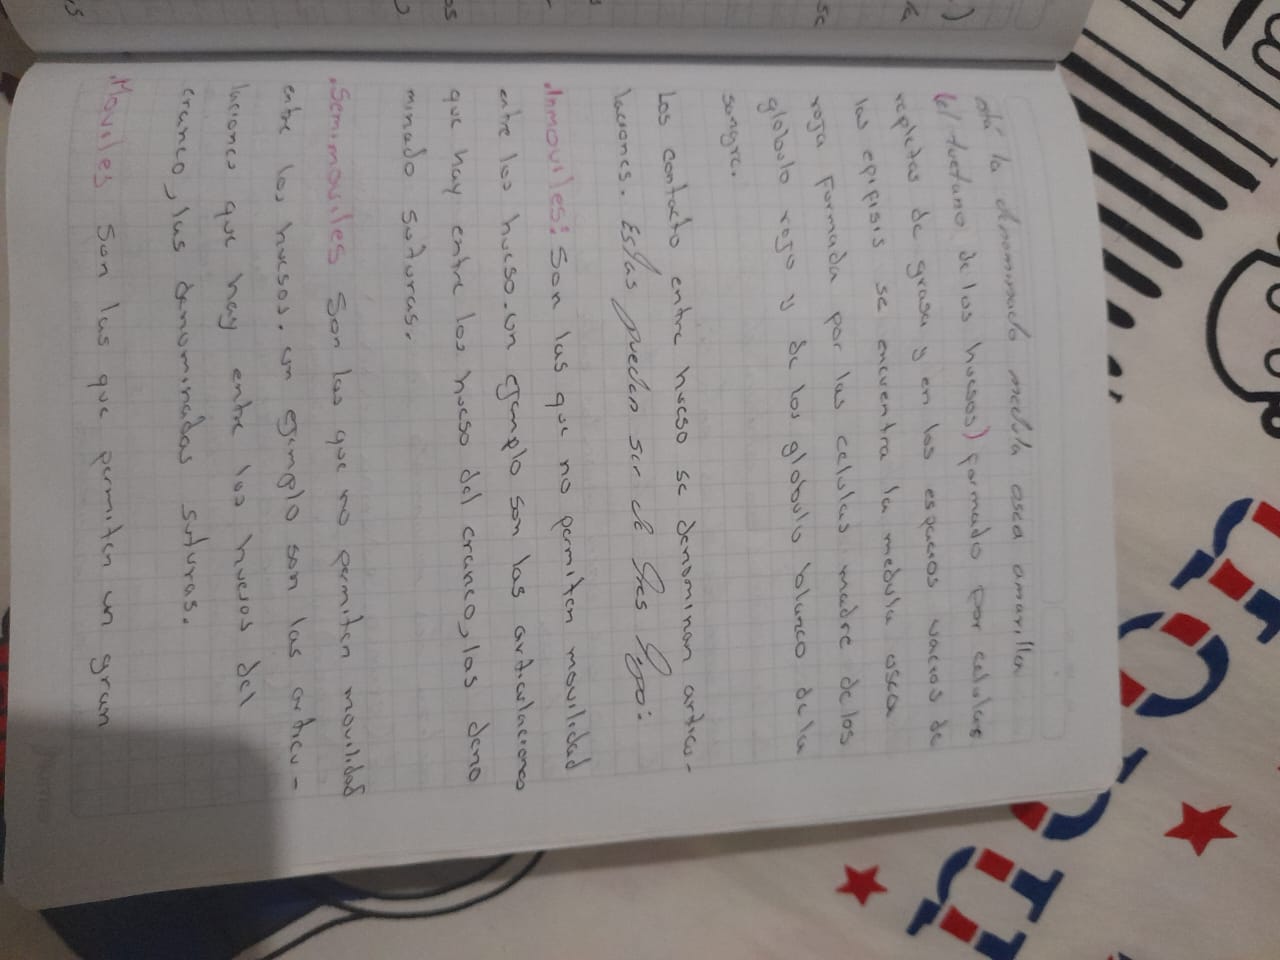 está la denominada medula osea amarilla
(el tuetano de los huesos) formado por celulas
repletas de grasa y en los espacios vacios de
las epifisis se encuentra la medula osea
roja formada por las celulas madre de los
globulo rojo y de los glóbulo blanco de la
sangre.
Los contacto entre hueso se denominan articu-
laciones. Estas pueden ser de tres tipo:
.Inmoviles: Son las que no permiten movilidad
entre los hueso. un ejemplo son las articulaciones
que hay entre los hueso del craneo, las deno
minado suturas.
.Semimoviles Son las que no permiten movilidad
entre los huesos. un ejemplo son las articu-
laciones que hay entre los huesos del
craneo, las denominadas suturas.
.Moviles Son las que permiten un gran